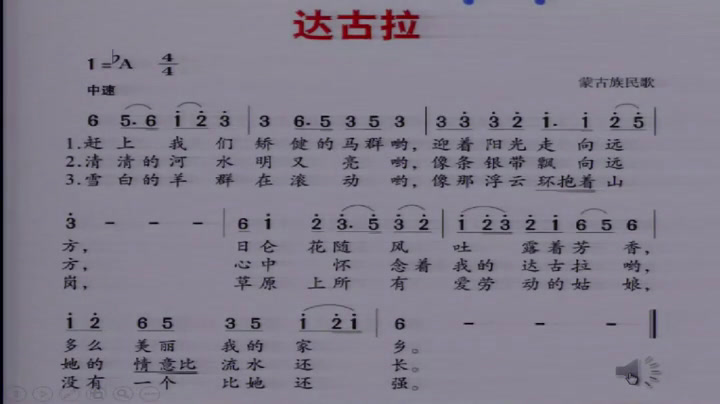 达古拉
1=♭A 4/4
蒙古族民歌
中速
6 5. 6 i 2 3 | 3 6. 5 3 5 3 | 3 3 3 2 i. i 2 5 |
1.赶上我们矫健的马群哟，迎着阳光走向远
2.清清的河水明又亮哟，像条银带飘向远
3.雪白的羊群在滚动哟，像那浮云环抱着山
3 - - - | 6 i 2 3. 5 3 2 | i 2 3 2 i 6 5 6 |
方， 日仑花随风吐露着芳香，
方， 心中怀念着我的达古拉哟，
岗， 草原上所有爱劳动的姑娘，
i 2 6 5 3 5 i 2 i | 6 - - - ‖
多么美丽我的家乡。
她的情意比流水还长。
没有一个比她还强。